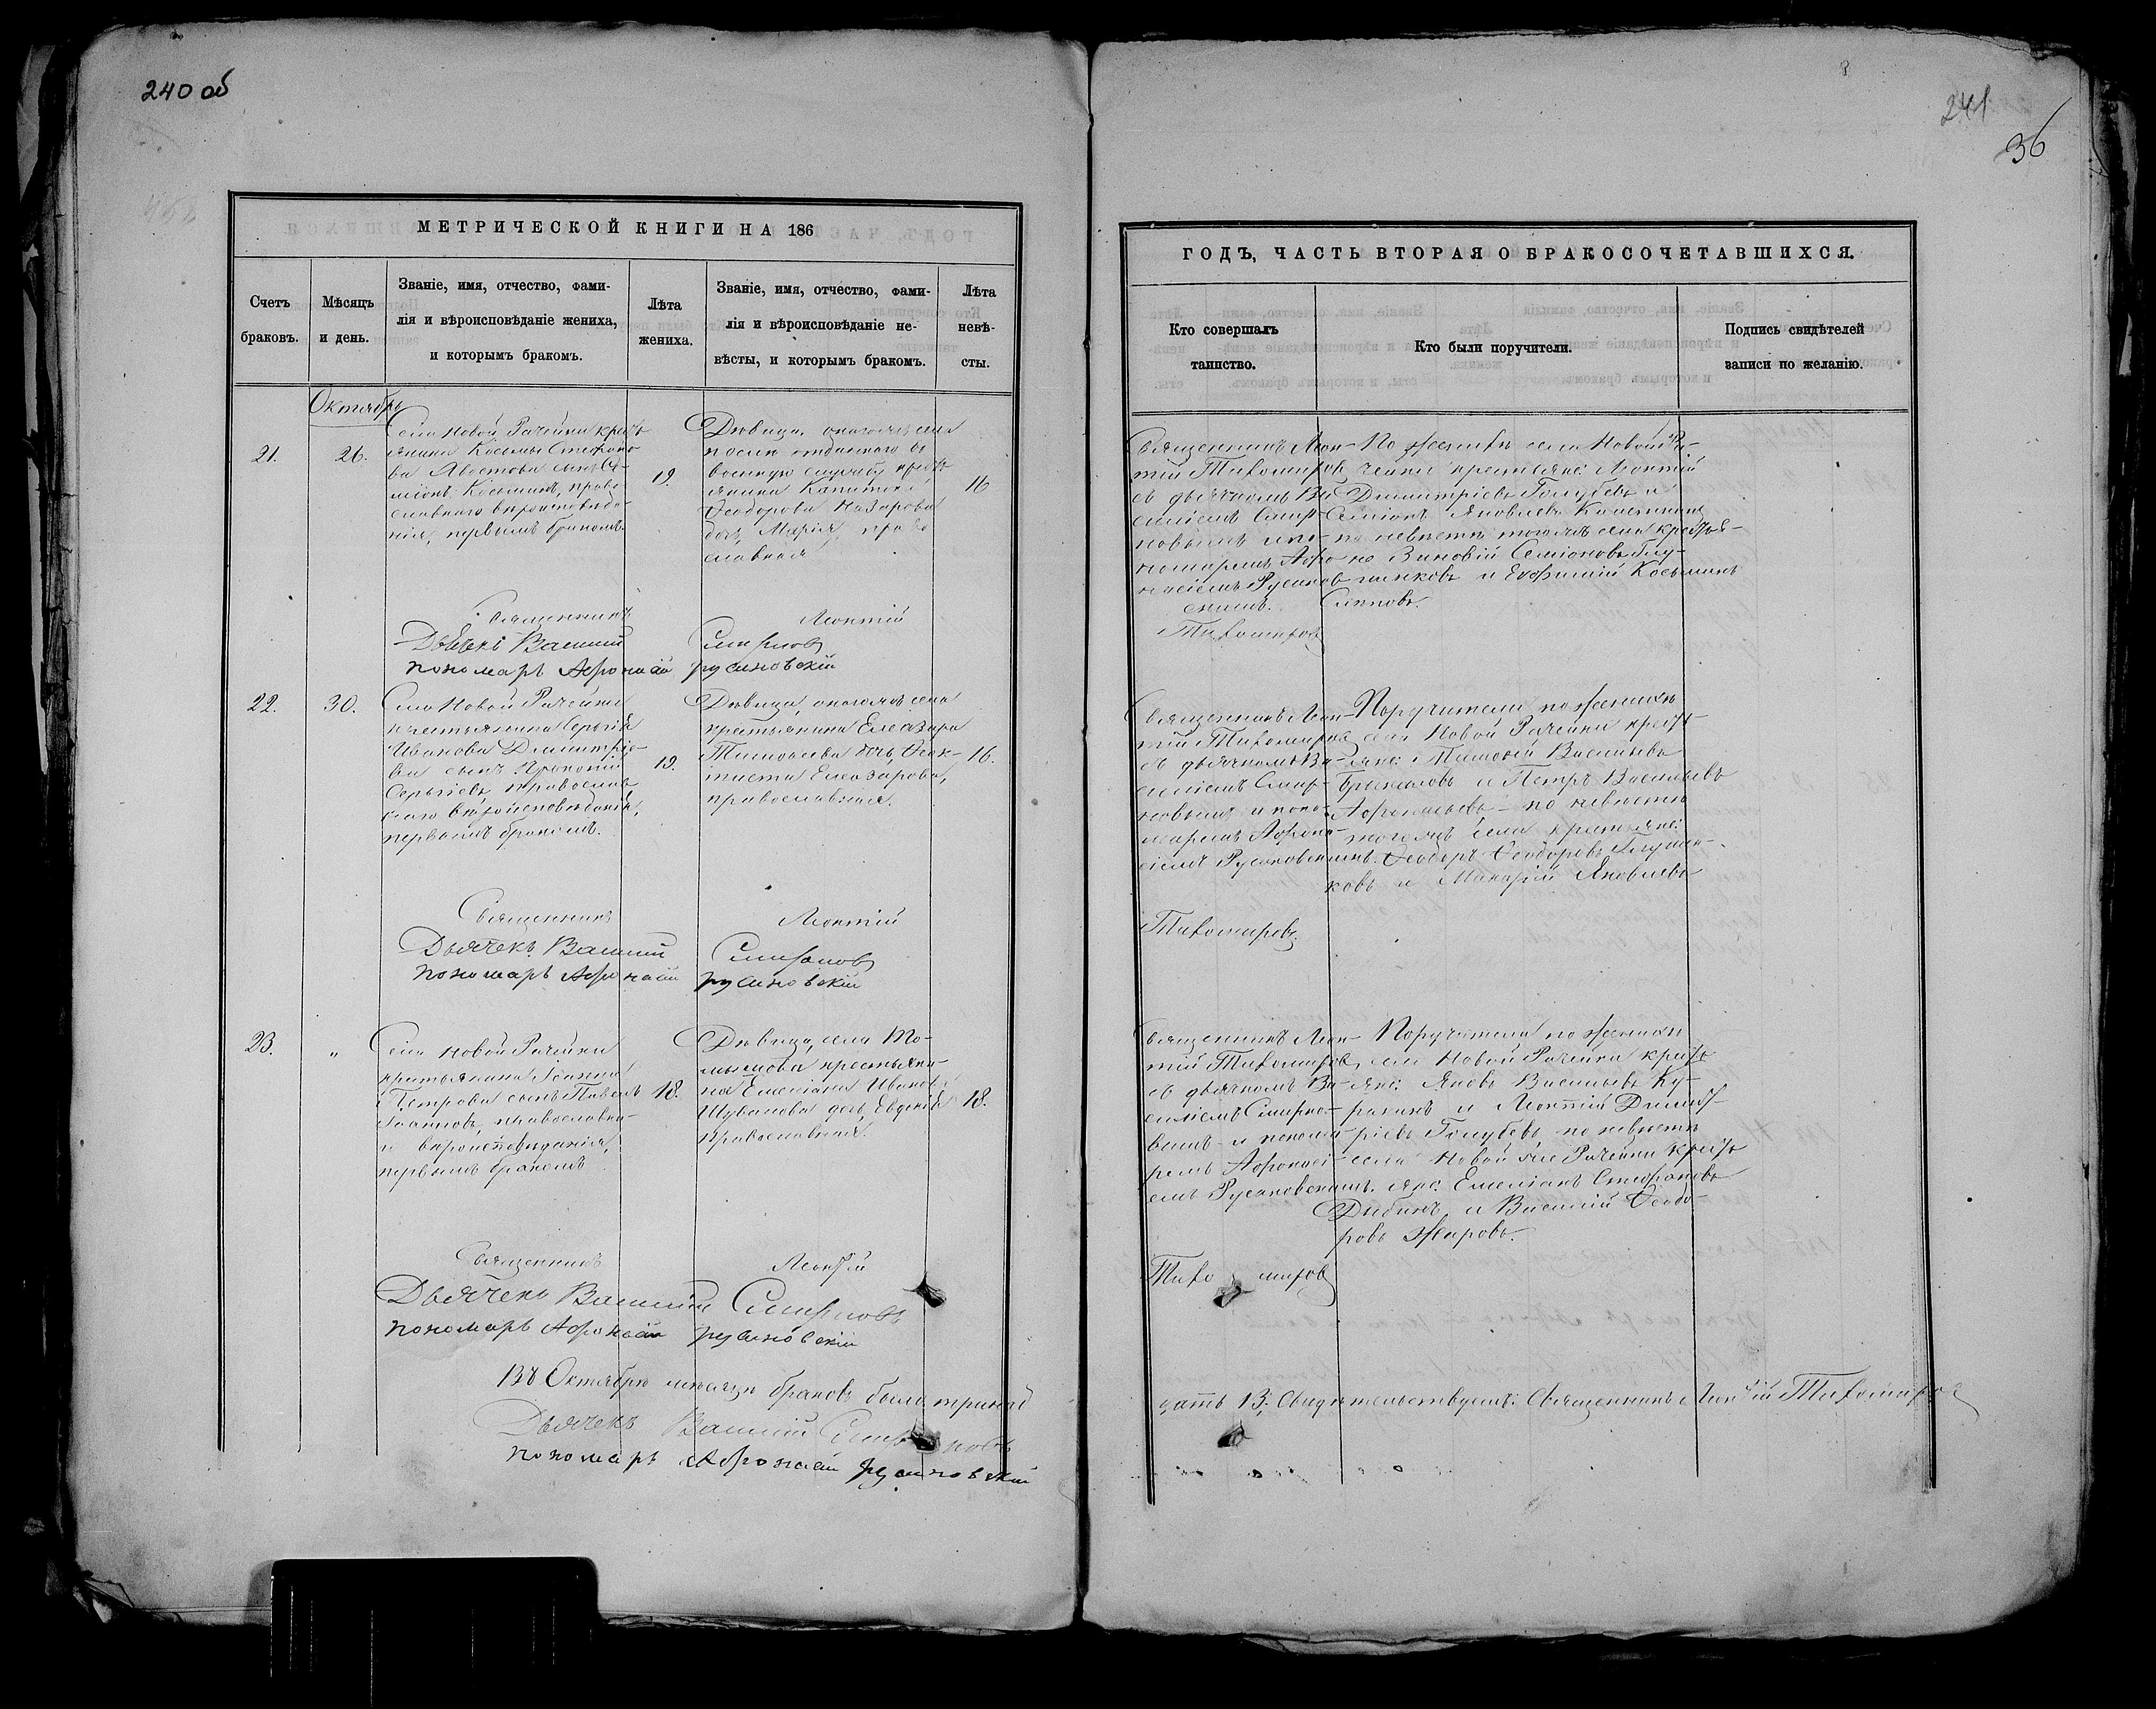 240 об
МЕТРИЧЕСКОЙ КНИГИ НА 186
Счетъ браковъ.
Мѣсяцъ и день.
Званіе, имя, отчество, фами-
лія и вѣроисповѣданіе жениха,
и которымъ бракомъ.
Лѣта жениха.
Званіе, имя, отчество, фами-
лія и вѣроисповѣданіе не-
вѣсты, и которымъ бракомъ.
Лѣта невѣ-
сты.
Октябрь
21.
26.
Села Новой Рачейки кресть
янина Косьмы Стефано-
ва сынъ Се-
міонъ Косьминъ, право-
славнаго вѣроисповѣда-
нія, первымъ бракомъ.
19.
Дѣвица, онагожъ села
отданнаго въ
военную службу кресть
янина Капитона
Ѳеодорова Назарова
дочь Марія, право
славная
16
Священникъ Леонтій
Дьячекъ Василій Смирновъ
пономарь Афонасій русановскій
22.
30.
Села Новой Рачейки
крестьянина Сергія
Иванова Димитріе-
ва сынъ Прокопій
Сергіевъ, православ-
наго вѣроисповѣданія,
первымъ бракомъ.
19.
Дѣвица, онагожъ села
крестьянина Елеазара
Тимофеева дочь, Ѳеок-
тиста Елеазарова,
православная.
16.
Священникъ Леонтій
Дьячекъ Василій Смирновъ
пономарь Афонасій русановскій
23.
"
Села Новой Рачейки
крестьянина Іоанна
Петрова сынъ Павелъ
Іоанновъ, православна-
го вѣроисповѣданія,
первымъ бракомъ
18.
Дѣвица, села То-
мышова крестьяни-
на Емеліана Иванова
Шувалова дочь, Евдокія
православная.
18.
Священникъ Леонтій
Дьячекъ Василій Смирновъ
пономарь Афонасій русановскій
Въ Октябрѣ мѣсяцѣ браковъ было тринад
Дьячекъ Василій Смирновъ
пономарь Афонасій русановскій
241
36
ГОДЪ, ЧАСТЬ ВТОРАЯ О БРАКОСОЧЕТАВШИХСЯ.
Кто совершалъ таинство.
Кто были поручители.
Подпись свидѣтелей записи по желанію.
Священникъ Леон-
тій Тихомировъ
съ дьячкомъ Ва
силіемъ Смир-
новымъ и по-
номаремъ Афо
насіемъ Русанов
скимъ.
По женихѣ села Новой Ра-
чейки крестьяне: Леонтій
Димитріевъ Голубевъ и
Семіонъ Яковлевъ
по невѣстѣ тогожъ села крестья-
не Зиновій Семіоновъ Глу-
шенковъ и Евфимій Косьминъ
Тихомировъ
Священникъ Леон-
тій Тихомировъ
съ дьячкомъ Ва-
силіемъ Смир-
новымъ и поно-
маремъ Афона-
сіемъ Русановскимъ.
Поручители по женихѣ
села Новой Рачейки кресть-
яне: Тимофей Васильевъ
и Петръ Васильевъ
Афонасьевъ - по невѣстѣ
тогожъ села крестьяне:
Ѳеодоръ Ѳеодоровъ Глушен-
ковъ и Макарій Яковлевъ
Тихомировъ.
Священникъ Леон-
тій Тихомировъ
съ дьячкомъ Ва-
силіемъ Смирно-
вымъ и понома
ремъ Афонасі-
емъ Русановскимъ.
Поручители по женихѣ
села Новой Рачейки кресть
яне: Яковъ Васильевъ Ку-
и Леонтій Димит-
ріевъ Голубевъ, по невѣстѣ
села Новой же Рачейки кресть
яне: Емеліанъ Стефановъ
Дыбинъ и Василій Ѳеодо-
ровъ Жаровъ.
Тихомировъ
цать 13; Свидѣтельствуемъ: Священникъ Леонтій Тихомировъ